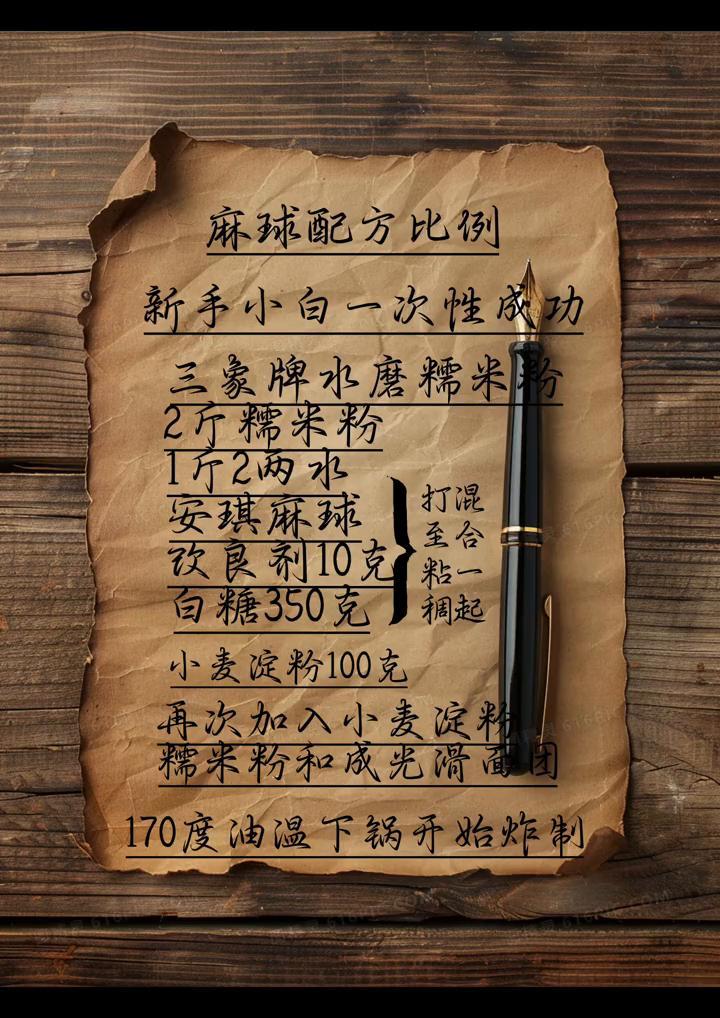 麻球配方比例
新手小白一次性成功
三象牌水磨糯米粉
2斤糯米粉
1斤2两水
安琪麻球
改良剂10克
白糖350克
混合一起
打至粘稠
小麦淀粉100克
再次加入小麦淀粉
糯米粉和成光滑面团
170度油温下锅开始炸制